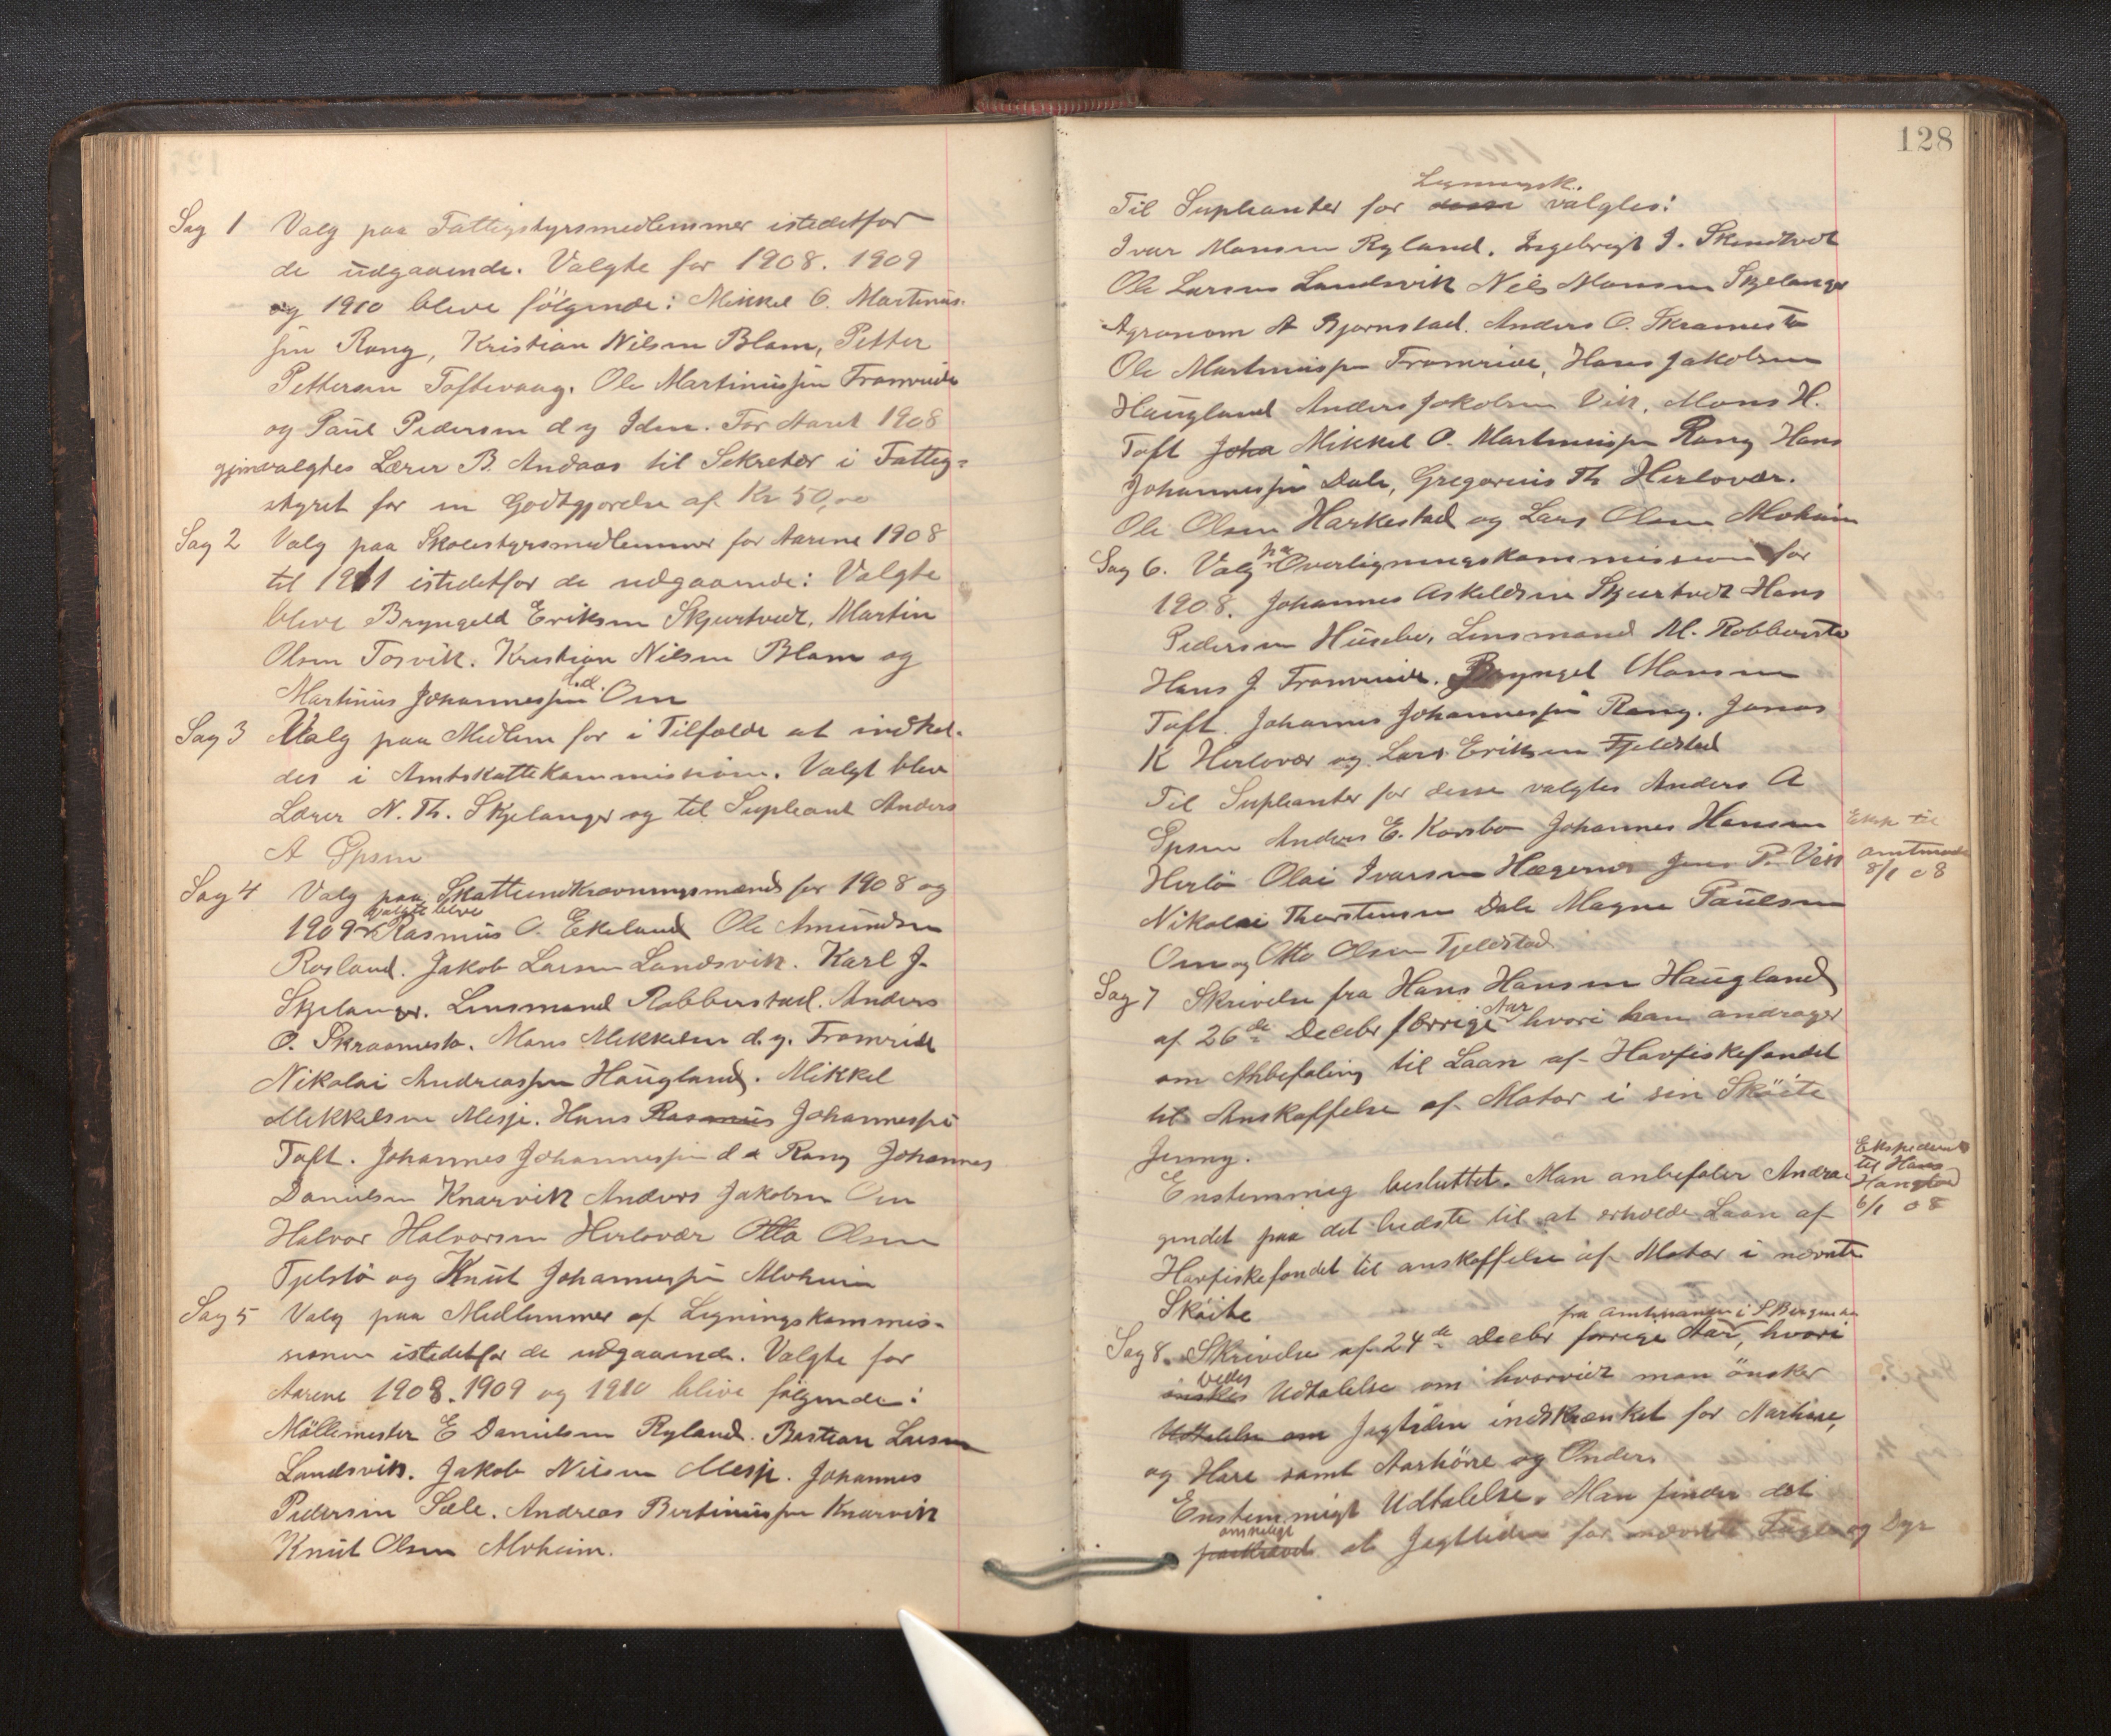 Sag 1 Valg paa Fattigstyrsmedlemmer istedetfor
de udgaaende. Valgte for 1908. 1909
og 1910 bleve følgende: Mikkel O. Martinus-
sen Rong, Kristian Nilsen Blom, Petter
Pettersen Toftevaag. Ole Martinussen Fromreide
og Paul Pedersen d y Iden. For Aaret 1908
gjenvalgtes Lærer B. Andaas til Sekretær i Fattig-
styret for en Godtgjørelse af Kr 50,00
Sag 2 Valg paa Skolestyrsmedlemmer for Aarene 1908
til 1911 istedetfor de udgaaende: Valgte
bleve Bryngeld Eriksen Skjurtvedt, Martin
Olsen Torsvik. Kristian Nilsen Blom og
Martinus Johannessen d.æ. Oen
Sag 3 Valg paa Medlem for i Tilfælde at indkal-
des i Amtsskattekommissionen. Valgt blev
Lærer N. Th. Skjelanger og til Supleant Anders
A Epsen
Sag 4 Valg paa Skatteindkrævningsmænd for 1908 og
1909. Valgte bleve Rasmus O. Ekeland Ole Amundsen
Rosland. Jakob Larsen Landsvik. Karl J.
Skjelanger. Lensmand Robberstad. Anders
O. Skraamestø. Mons Mikkelsen d.y. Fromreide
Nikolai Andreassen Haugland. Mikkel
Mikkelsen Mesje. Hans Rasmus Johannessen
Toft. Johannes Johannessen d æ Rong Johannes
Danielsen Knarvik Anders Jakobsen Oen
Halvor Halvorsen Herløvær Otto Olsen
Tjelstø og Knut Johannessen Alvheim
Sag 5 Valg paa Medlemmer af Ligningskommis-
sionen istedetfor de udgaaende. Valgte for
Aarene 1908. 1909 og 1910 bleve følgende:
Möllemester E Danielsen Ryland. Bastian Larsen
Landsvik. Jakob Nilsen Mesje. Johannes
Pedersen Sæle. Andreas Bertinussen Knarvik
Knut Olsen Alvheim.
128
Til Supleanter for desse Ligningsk. valgtes:
Ivar Monsen Ryland. Ingebrigt J. Skurtvedt
Ole Larsen Landsvik Nils Monsen Skjelanger
Agronom A Bjørnstad. Anders O. Skramestø
Ole Martinussen Fromreide, Hans Jakobsen
Haugland Anders Jakobsen Vik. Mons H.
Toft Joha Mikkel O. Martinussen Rong Hans
Johannessen Dale, Gregorius Th Herlovær.
Ole Olsen Harkestad og Lars Olsen Alvheim
Sag 6. Valg paa Overligningskommission for
1908. Johannes Askeldsen Skjurtvedt Hans
Pedersen Husebø, Lensmand M. Robberstad
Hans J Fromreide. Bryngel Monsen
Toft. Johannes Johannessen Rong. Jonas
K Herlovær og Lars Eriksen Fjeldstad
Til Supleanter for desse valgtes Anders A
Epsen Anders E. Korsbø Johannes Hansen
Herlø Olai Ivarsen Hægernes Jens P. Vik
Nikolai Thorstensen Dale Magne Paulsen
Oen og Otto Olsen Tjeldstad
Eksp til
amtmand
8/1 08
Sag 7 Skrivelse fra Hans Hansen Haugland
af 26de Decebr forrige Aar hvori han andrager
om Anbefaling til Laan af Havfiskefondet
til Anskaffelse af Motor i sin Sköite
Jenny.
Enstemmig besluttet. Man anbefaler Andra-
gendet paa det bedste til at erholde Laan af
Havfiskefondet til anskaffelse af Motor i nævnte
Sköite
Ekspedert
til Hans
Haugland
6/1 08
Sag 8. Skrivelse af 24de Decebr forrige Aar, fra amtmanden i S Bergenhus hvori
önskes bedes Udtalelse om hvorvidt man önsker
Udtalelse om Jagttiden indskrænket for
og Hare samt Aarhöne og Ænder.
Enstemmigt Udtalelse. Man finder det
paakrævet önskeligt at Jagttiden for nævnte Fugle og Dyr